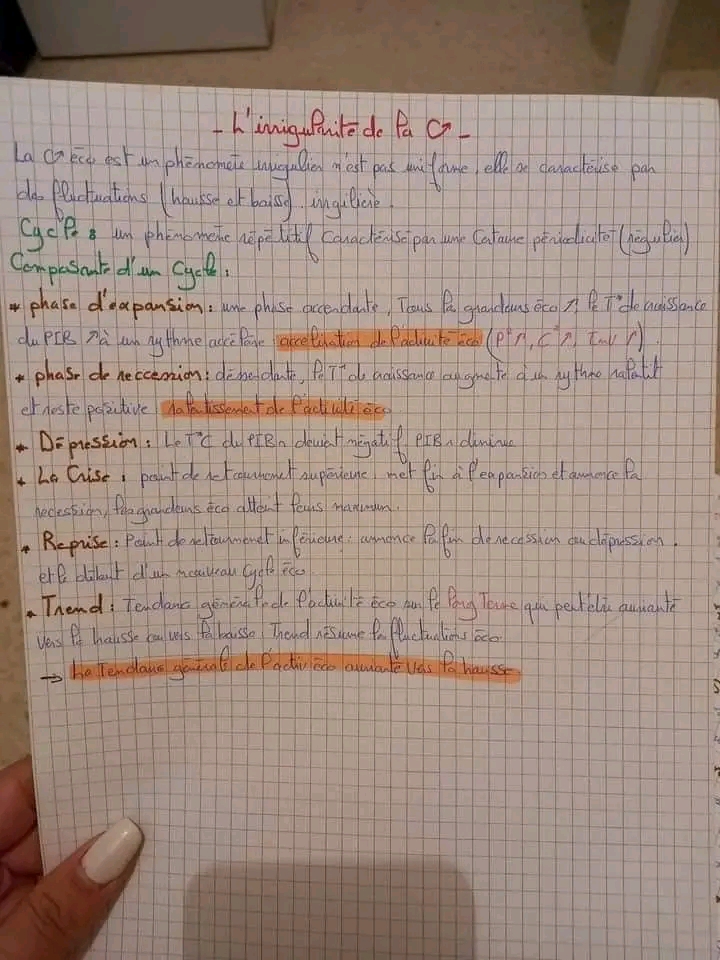 - L'irrigularité de la C↗ -
La C↗ éco est un phénomète irregulier n'est pas uniforme, elle se caractérise par
des fluctuations (hausse et baisse)
Cycle : un phénomène répétitif caractérisé par une Cataine périodicité (régulier)
Composante d'un Cycle :
* phase d'expansion : une phase accendante, Tous la grandeurs éco ↗, le T* de croissance
du PIB ↗ à un rythme accéléré accelération de l'activité éco (P° ↗, C° ↗, Inv ↗)
* phase de reccession : dessendante, le T* de croissance augmete à un rythme ralatit
et reste positive ralatissement de l'activité éco
* Dépression : Le T*C du PIBn deviat négatif, PIBn diminue
* La Crise : point de retournemet supérieure. met fin à l'expansion et annonce la
recession, les grandeurs éco attent leurs maximum.
* Reprise : Point de retournemet inférieure : annonce la fin de recession ou dépression.
et le débuit d'un nouveau Cycle éco
* Trend : Tendanc générale de l'activité éco sur le long Terme qui peut être
vers la hausse ou vers la baisse, Trend résume la fluctuations éco
→ La Tendanc générale de l'activ éco vers la hausse